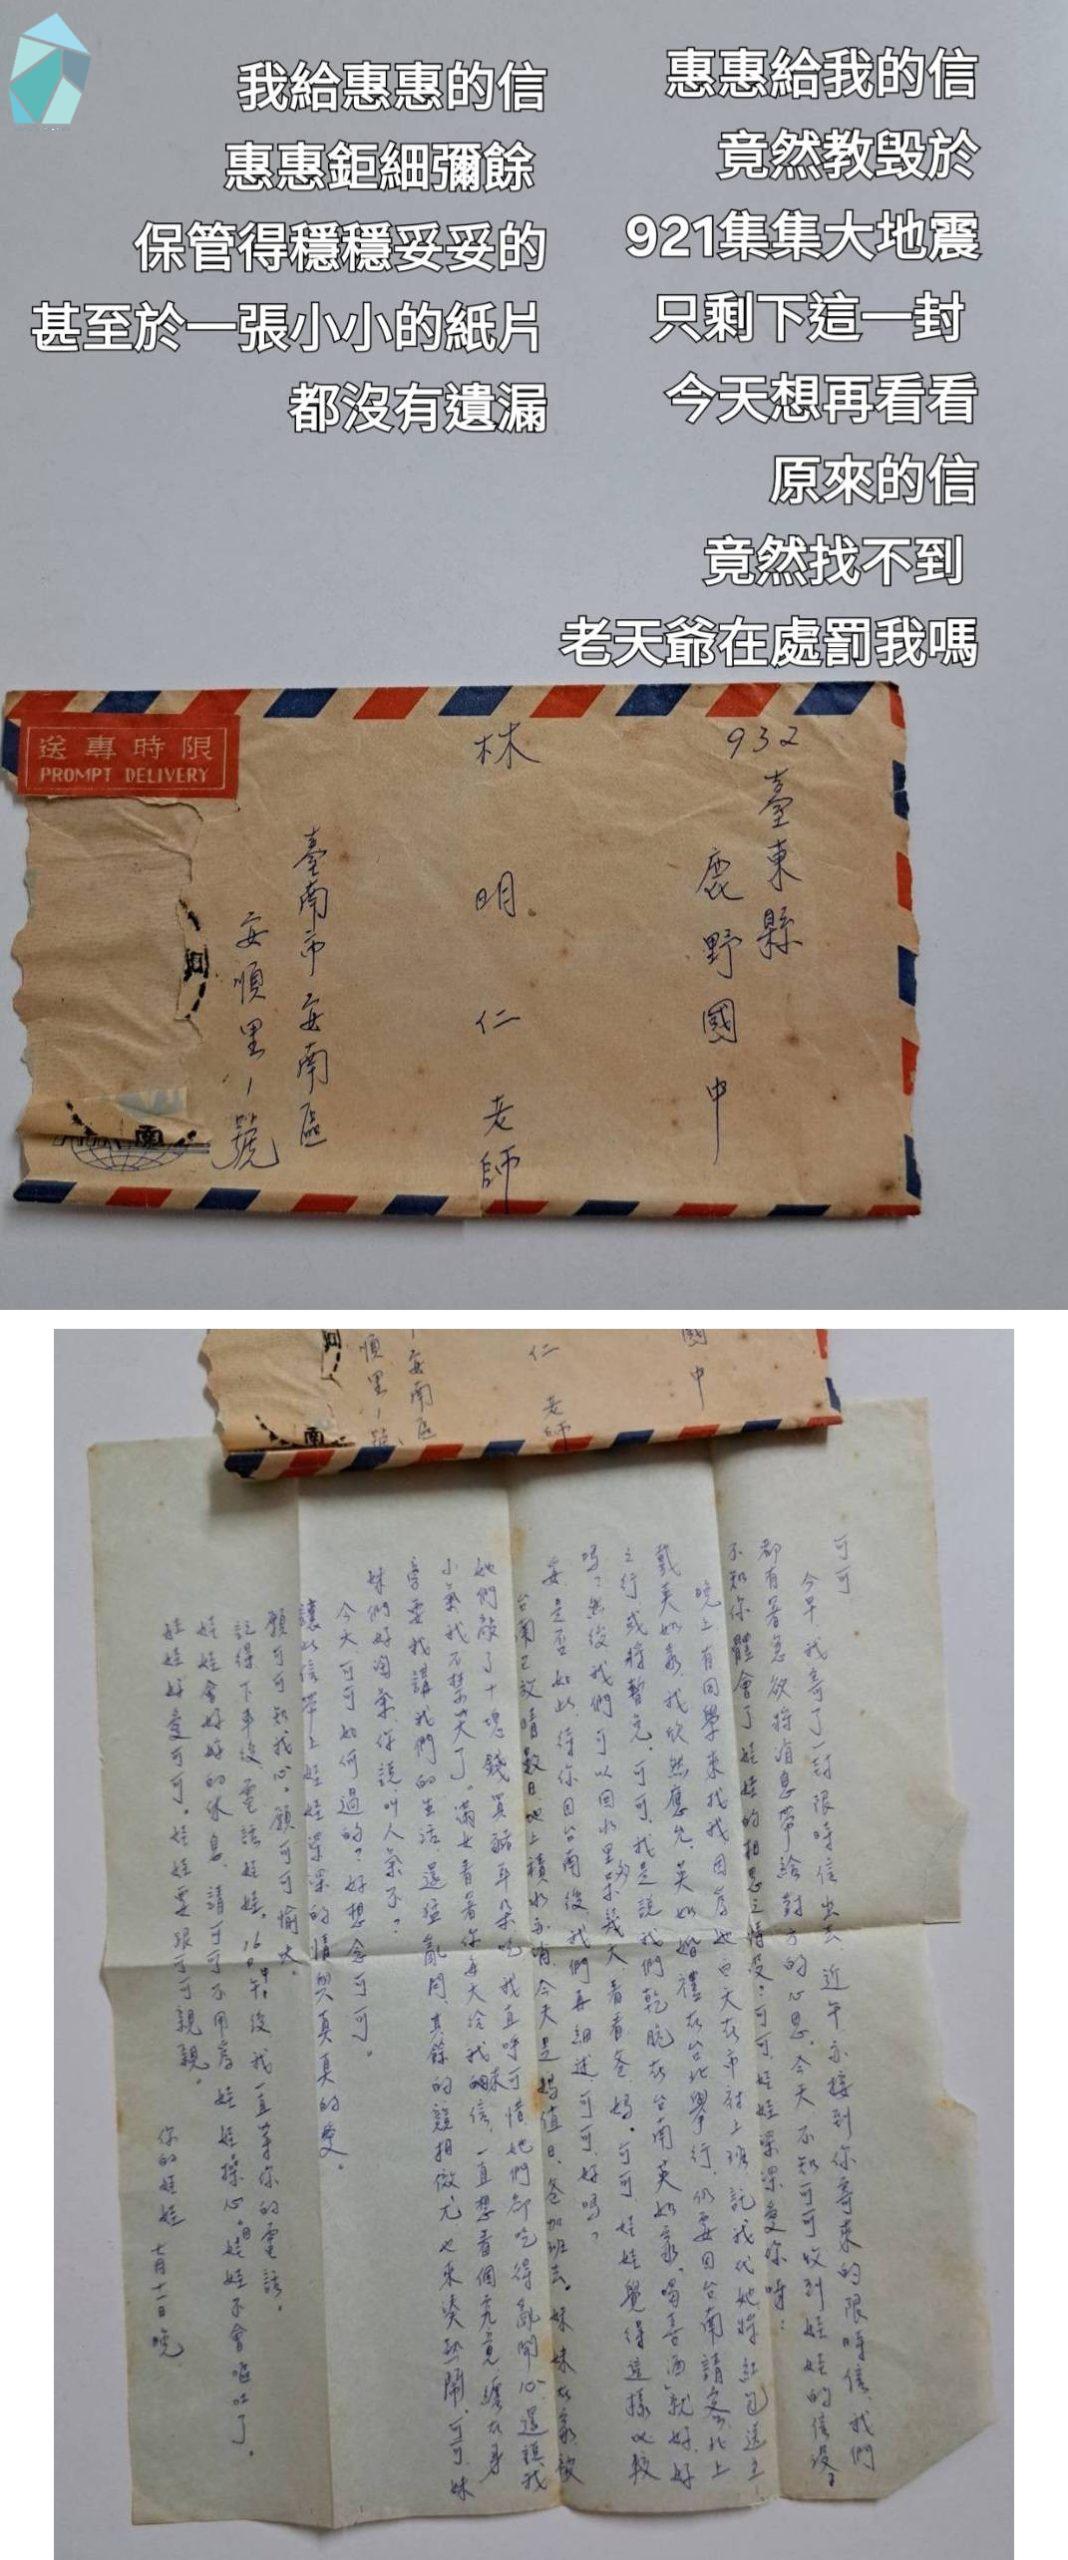 我給惠惠的信
惠惠鉅細彌餘
保管得穩穩妥妥的
甚至於一張小小的紙片
都沒有遺漏
惠惠給我的信
竟然教毀於
921集集大地震
只剩下這一封
今天想再看看
原來的信
竟然找不到
老天爺在處罰我嗎
送專時限
PROMPT DELIVERY
932
臺東縣
鹿野國中
林明仁老師
臺南市安南區
安順里1號
南
國中
仁老師
安南區
順里1號
南
可可
今早,我寄了一封限時信出去,近午亦接到你寄來的限時信,我們
都有著急欲將消息帶給對方的心思,今天不知可可收到娃娃的信沒?
不知你體會了娃娃的相思之情沒?可可,娃娃深深愛你呀!
晚上有同學來找我因為她白天在市社上班託我代她將紅包送王
戴英如家,我欣然應允,英如婚禮在台北舉行,仍要回台南請客,北上
之行或將暫免,可可,我是說我們乾脆在台南英如家喝喜酒就好,好
嗎?然後我們可以回水里多呆幾天,看看爸媽,可可,娃娃覺得這樣比較
妥,是否如此,待你回台南後,我們再細述可可,好嗎?
台南已放晴數日,地上積水亦消,今天是媽值日,爸加班去,妹妹在家,被
她們敲了十塊錢買豬耳朵吃,我直呼可惜,她們卻吃得亂開心,還說我
小氣,我不禁笑了。滿女看著你每天給我來信,一直想看個究竟,纏在身
旁要我講我們的生活,還猛亂問,其餘的競相傚尤也來湊熱鬧,可可,妹
妹們好淘氣,你說,叫人氣不?
今天,可可如何過的?好想念可可。
讓此信帶上娃娃深深的情與真真的愛。
願可可知我心。願可可愉快。
記得下車後電話娃娃,16日中午後我一直等你的電話。
娃娃會好好的休息,請可可不用為娃娃操心。娃娃不會嘔吐了。
娃娃好愛可可。娃娃要跟可可親親。
你的娃娃 七月十二日晚